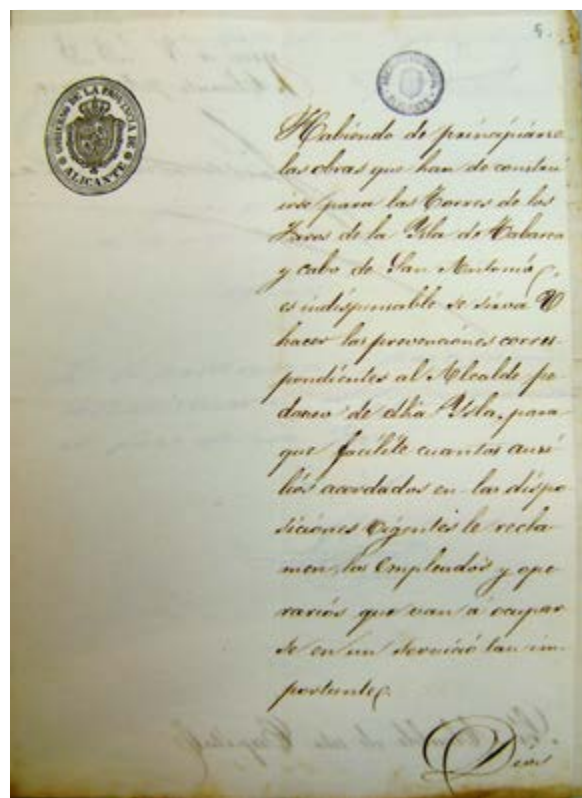 5
GOBIERNO DE LA PROVINCIA DE
ALICANTE
Habiendo de principiarse
las obras que han de constru
irse para las Torres de los
Faros de la Ysla de Tabarca
y cabo de San Antonio,
es indispensable se sirva V
hacer las prevenciones corres-
pondientes al Alcalde pe
daneo de dha Ysla, para
que facilite cuantos ausi
lios acordados en las dispo
siciones vigentes le recla
men, los Empleados y ope
rarios que van á ocupar
se en un servicio tan im-
portante.
Dios